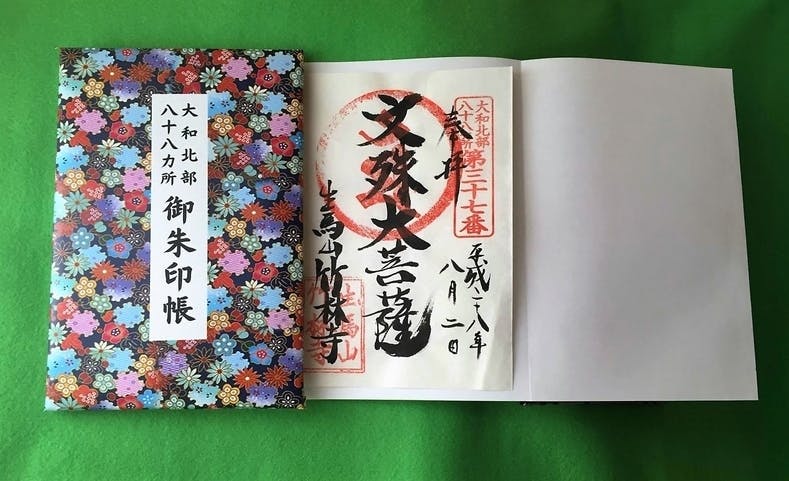 大和北部
八十八カ所
御朱印帳
大和北部
八十八所
第三十七番
奉拝
平成二八年
八月二日
文殊大菩薩
生馬山竹林寺
生馬山